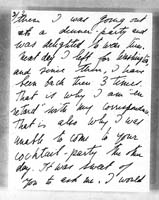 3/
then I was going out
to a dinner-party and
was delighted to
Next day I left for Washington
and since then, I have
been back there 3 times
that is why I am "en
retard" with my correspondence
That is also why I was
unable to come to your
cocktail-party the other
day. It was sweet of
you to ask me. I would